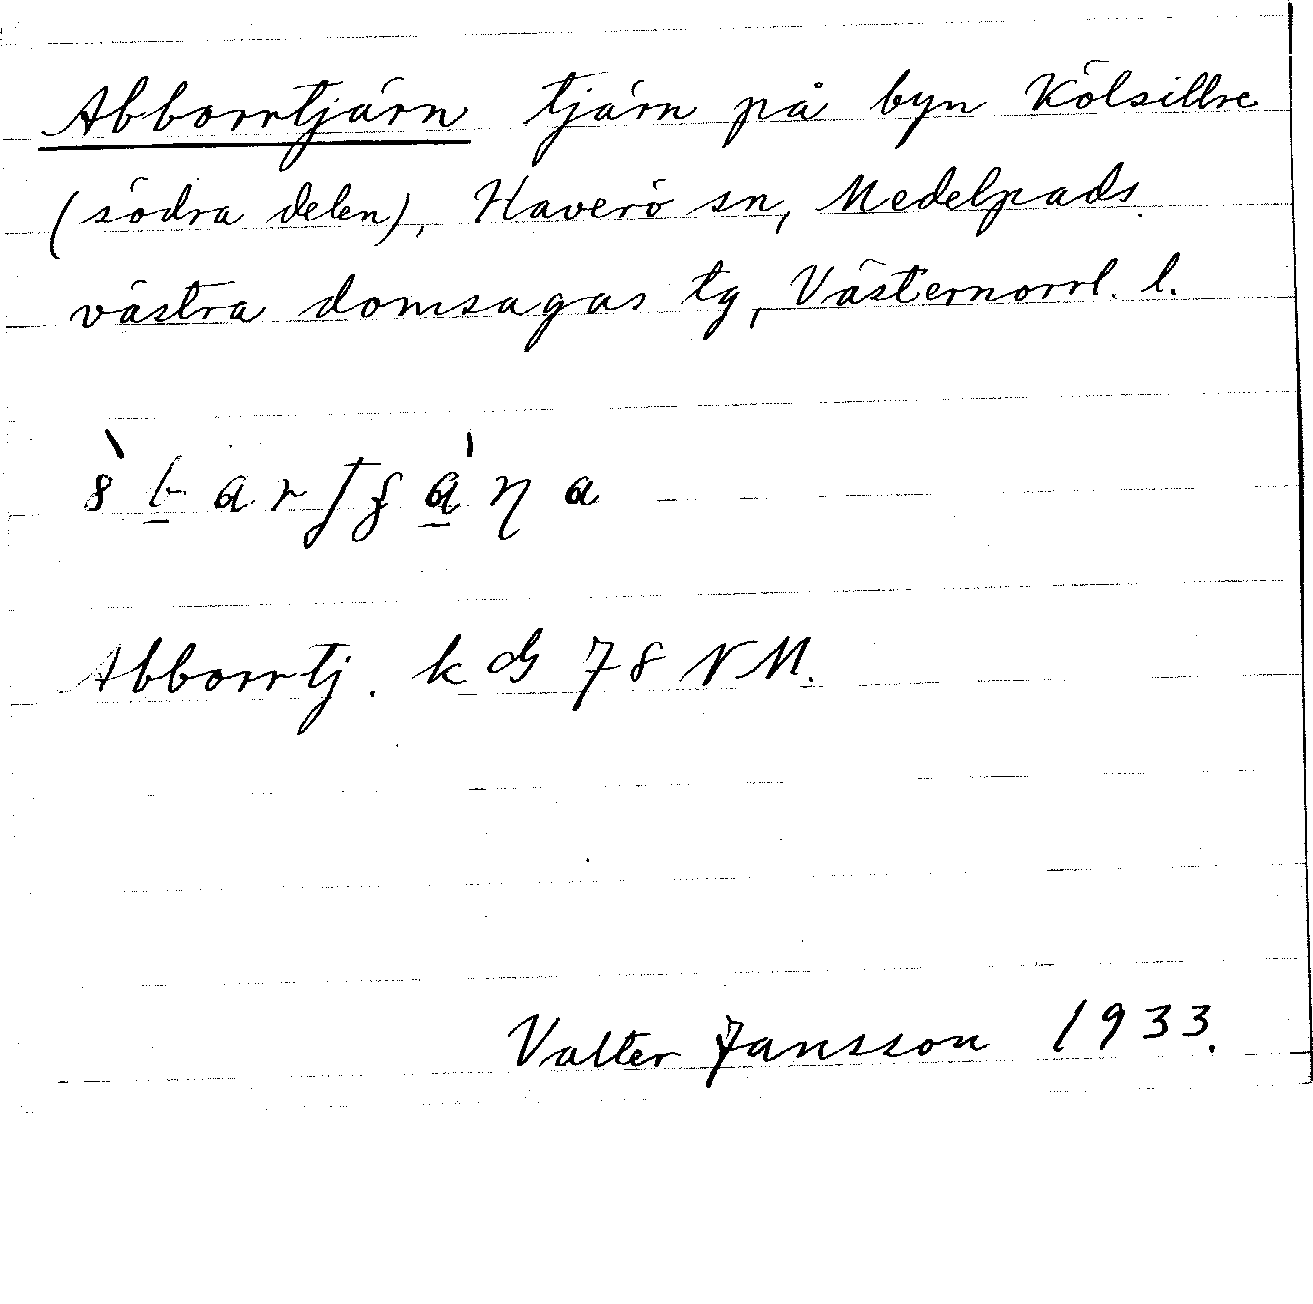 Abborrtjärn tjärn på byn Kölsillre
(södra delen), Haverö sn, Medelpads
västra domsagas tg, Västernorrl. l.
Abborrtj. k 78 NM.
Valter Jansson 1933.